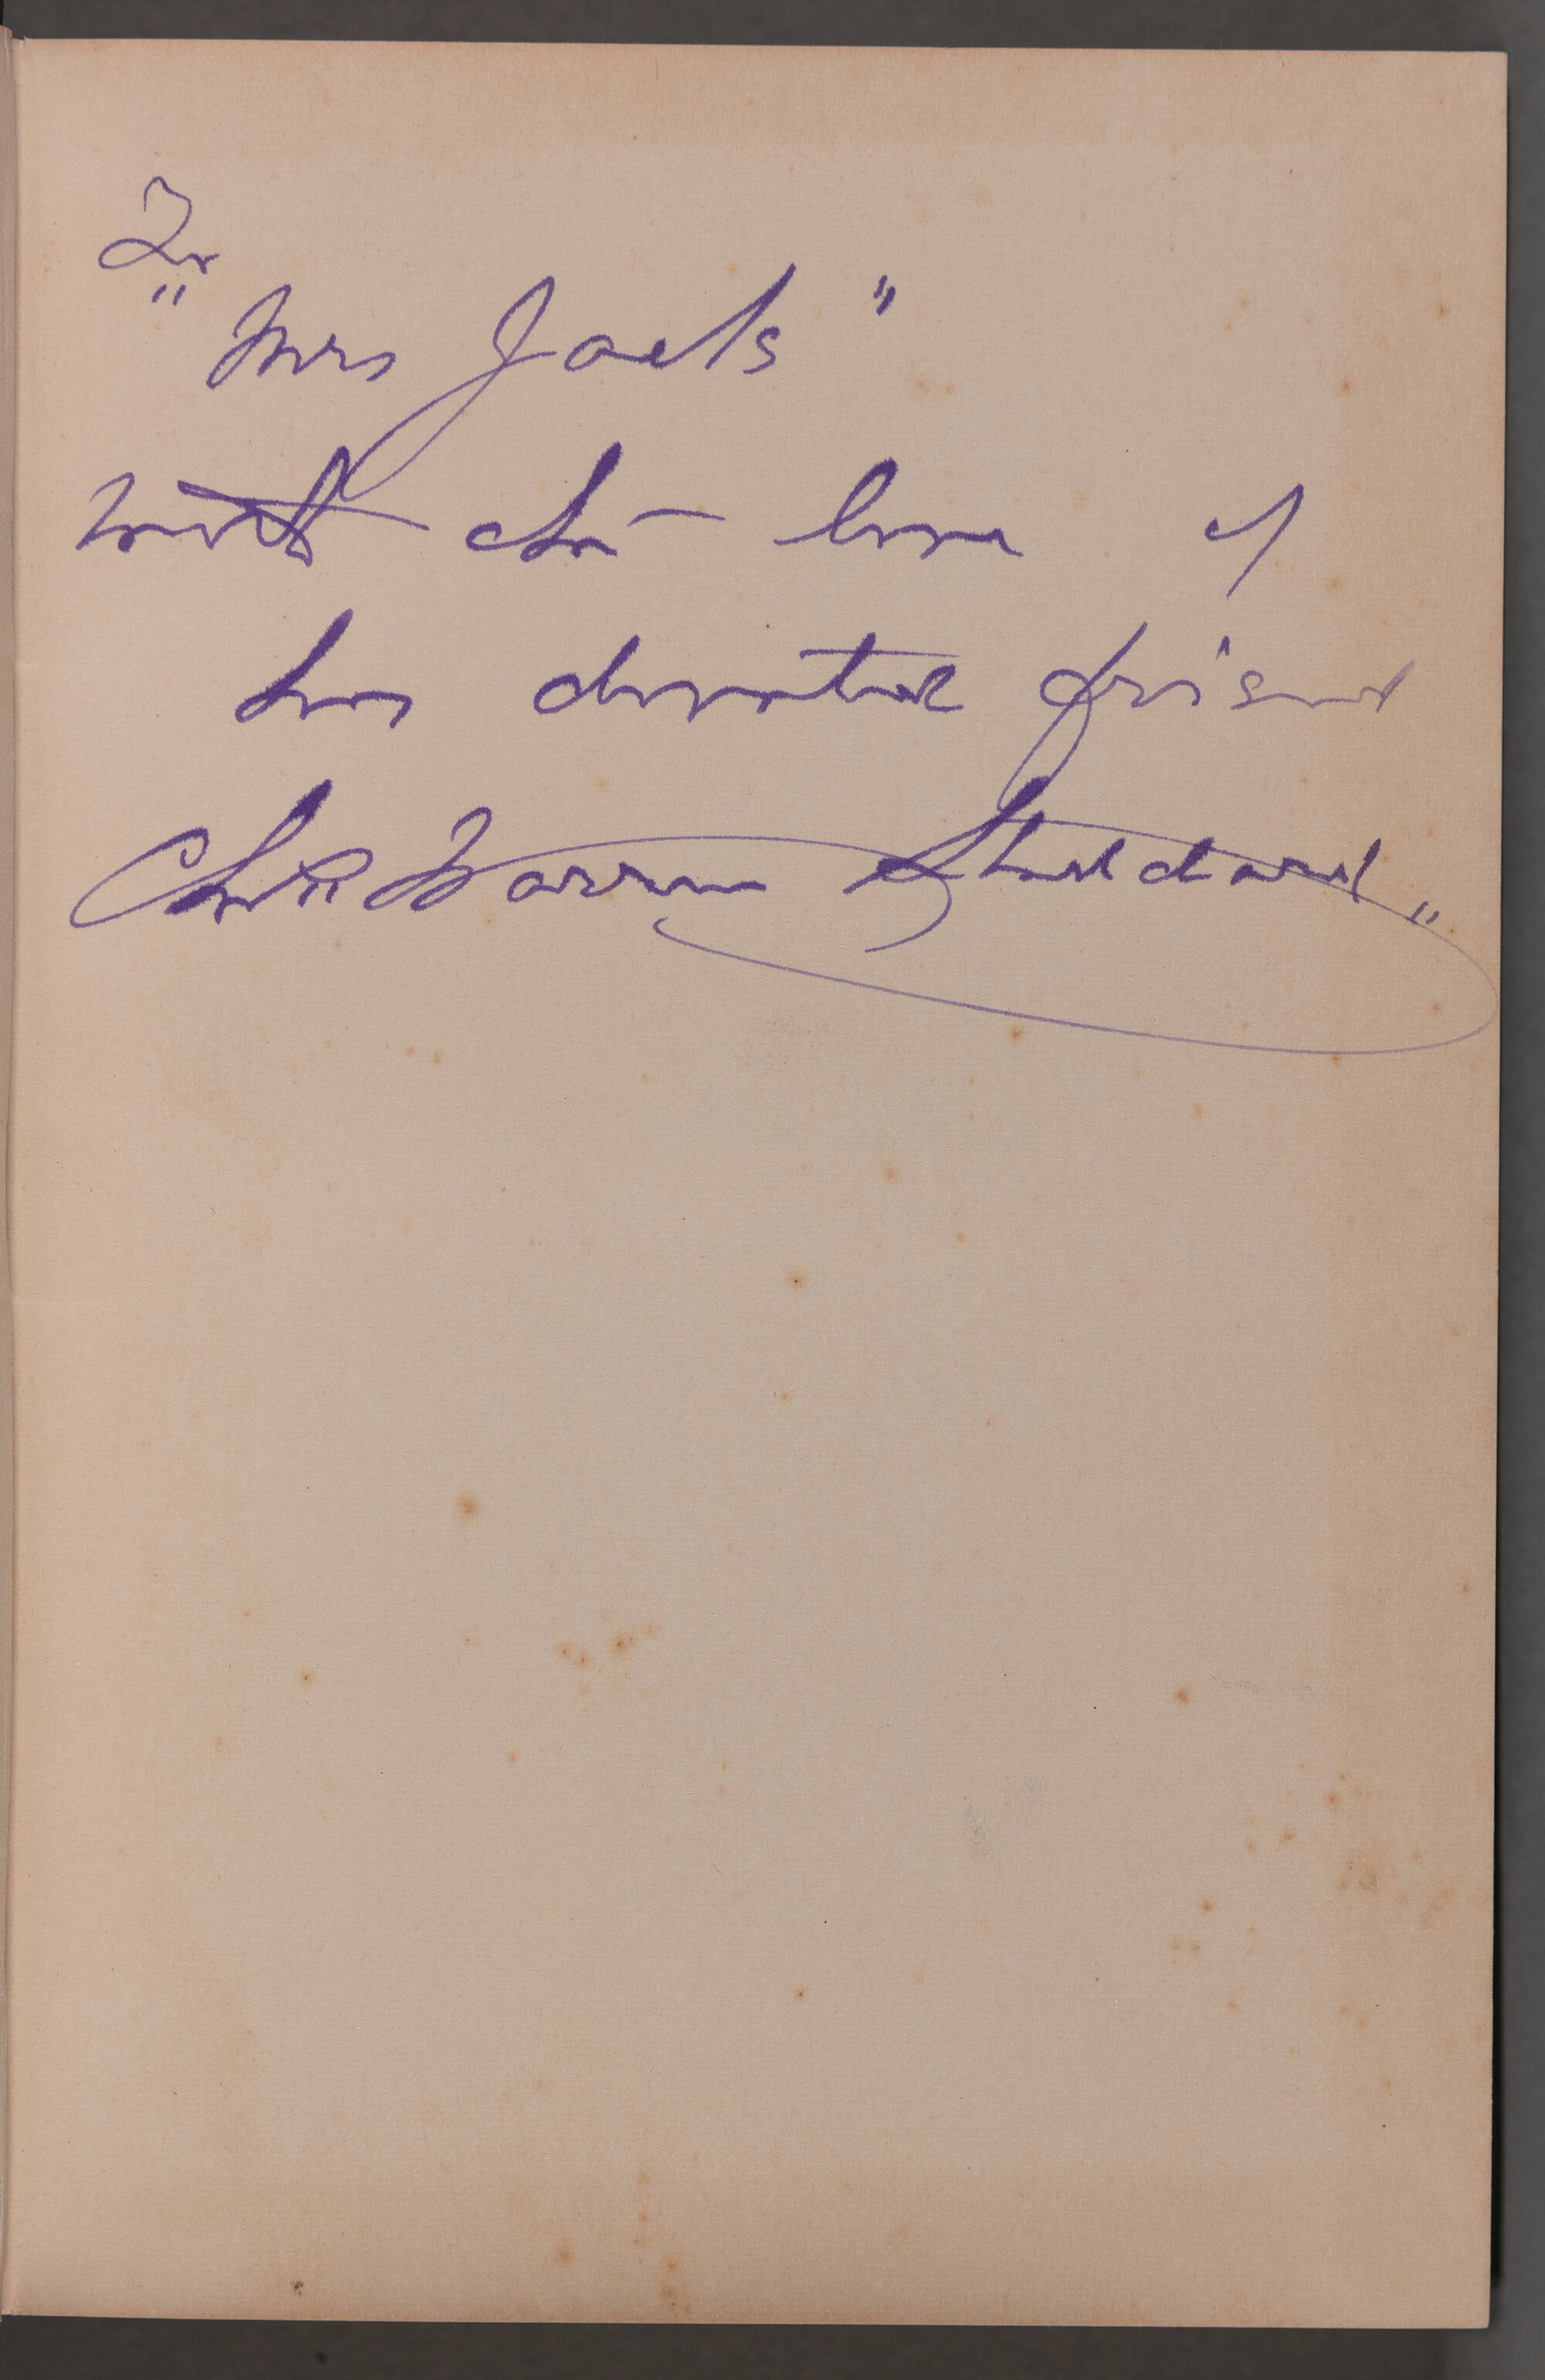 To
"Mrs Jack"
with the love of
her devoted friend
Chas Warren Stoddard"